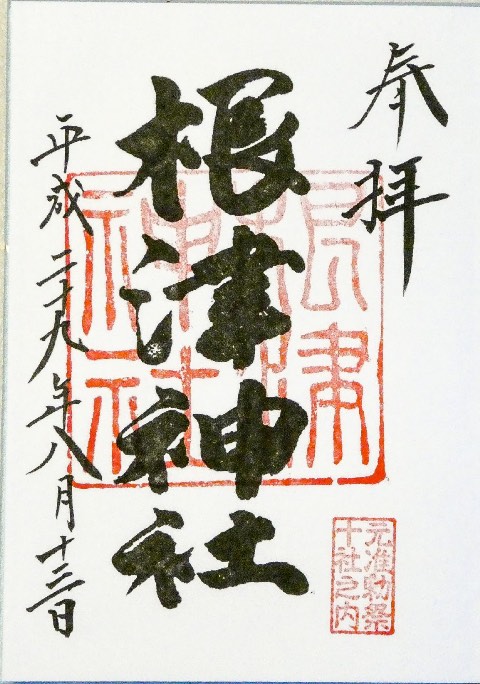 奉拝
根津神社
根津神社
元准勅祭
十社之内
平成二十九年八月十三日